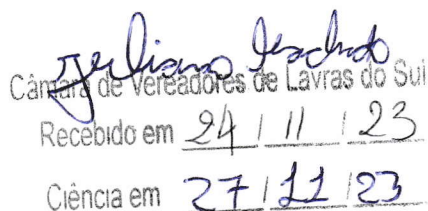 Juliano Machado
Câmara de Vereadores de Lavras do Sul
Recebido em 24 / 11 / 23
Ciência em 27 / 11 / 23